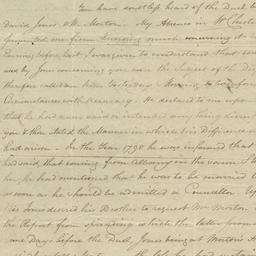 You have doubtless heard of the Duel be
David Jones & Mr. Morton. My Absence in W Chester
prevented me from knowing much concerning it
Evening before last I was given to understand that some
was by Jones concerning you were the Subject of the Di
therefore called on him Yesterday Morning to
Circumstances with accuracy. He declared to me upon
that he had never said or intended any thing disres
you & then stated the Manner in which his Difference
had arisen. In the Year 1798 he was informed that
had said, that coming from Albany in the same
her he had mentioned that he was to be married to
as soon as he should be admitted as Counsellor. Up
his Jones desired his Brother to request Mr Morton
the Report from spreading which the latter prom
some Days before the Duel, Jones being at Morton's H